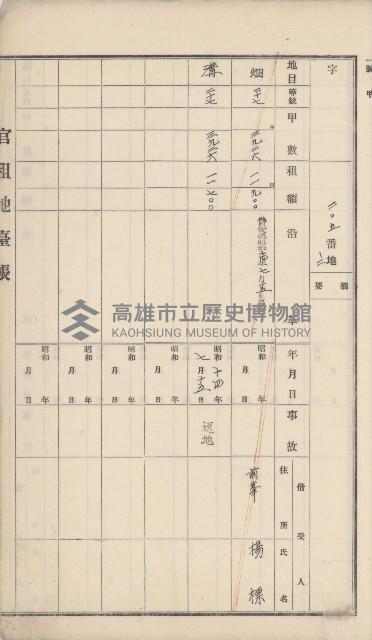 字 二〇五番地
二
摘要
地目 等級 甲數 租額 沿革 年月日 事故 借受人 住所氏名
畑 三七 三九三六 一一九〇〇 昭和 年 月 日 前峯 楊標
溝 三七 三九三六 一一七〇〇 昭和十四年七月十五日
昭和 年 月 日
昭和 年 月 日
昭和 年 月 日
昭和 年 月 日
官租地臺帳
高雄市立歷史博物館
KAOHSIUNG MUSEUM OF HISTORY